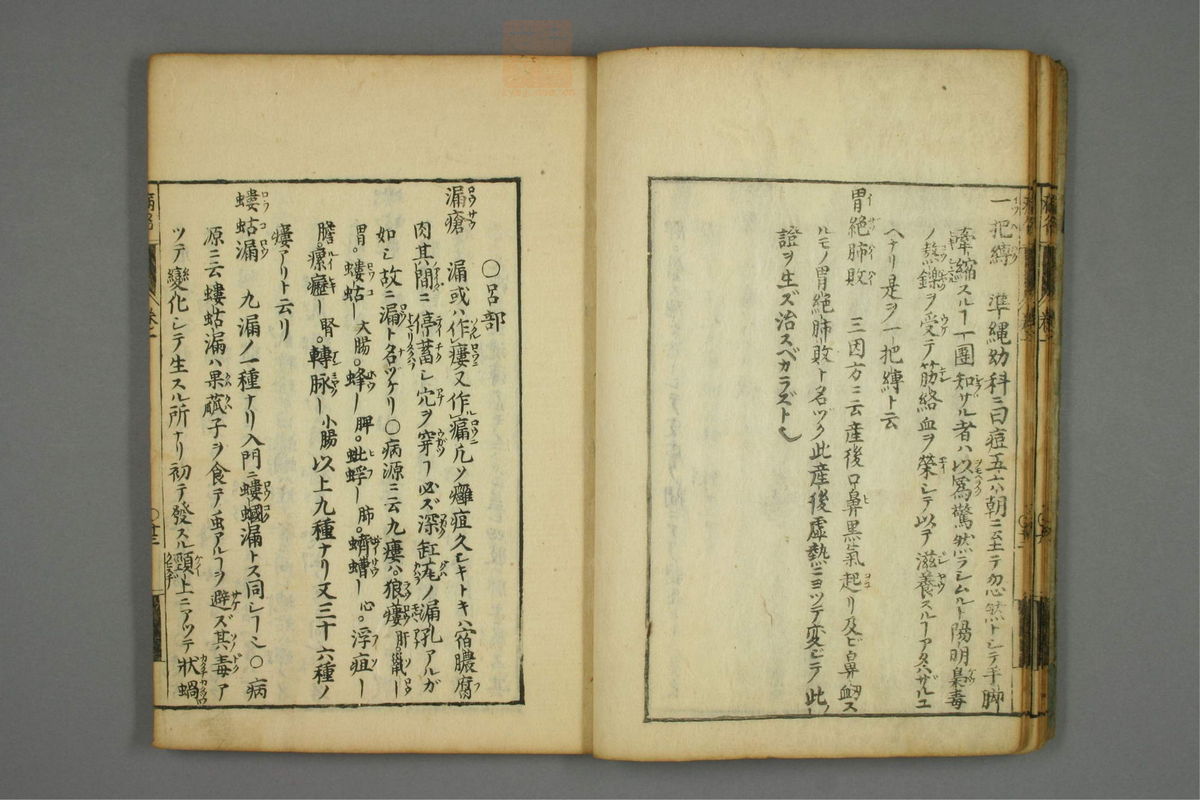 一把縛 準縄幼科ニ曰痘五六朝ニ至テ忽然トシテ手脚
牽縮スルヿ一團知ザル者ハ以爲驚然ラシムルト陽明梟毒
ノ熬鑠ヲ受テ筋絡血ヲ榮シテ以テ滋養スルヿアタハザルユ
ヘナリ是ヲ一把縛ト云
胃絶肺敗 三因方ニ云産後口鼻黒氣起リ及ビ鼻衄ス
ルモノ胃絶肺敗ト名ヅク此産後虚熱ニヨツテ変ビテ此
證ヲ生ズ治スベカラズト
〇呂部
漏瘡 漏或ハ作瘻又作㾞凡ソ癰疽久シキトキハ宿膿腐
肉其間ニ停蓄シ穴ヲ穿ヿ必ズ深缸ノ漏孔アルガ
如シ故ニ漏ト名ヅケリ〇病源ニ云九瘻ハ狼瘻肝鼠ー
胃螻蛄ー大腸蜂ー脾蚍蜉ー肺蠐螬ー心浮疽ー
膽瘰癧ー腎轉脉ー小腸以上九種ナリ又三十六種ノ
瘻アリト云リ
螻蛄漏 九漏ノ一種ナリ入門ニ螻蟈漏トス同シーシ〇病
源ニ云螻蛄漏ハ果蓏子ヲ食テ虫アルヿヲ避ズ其毒ア
ツテ變化シテ生スル所ナリ初テ發スル頸上ニアツテ狀蝸